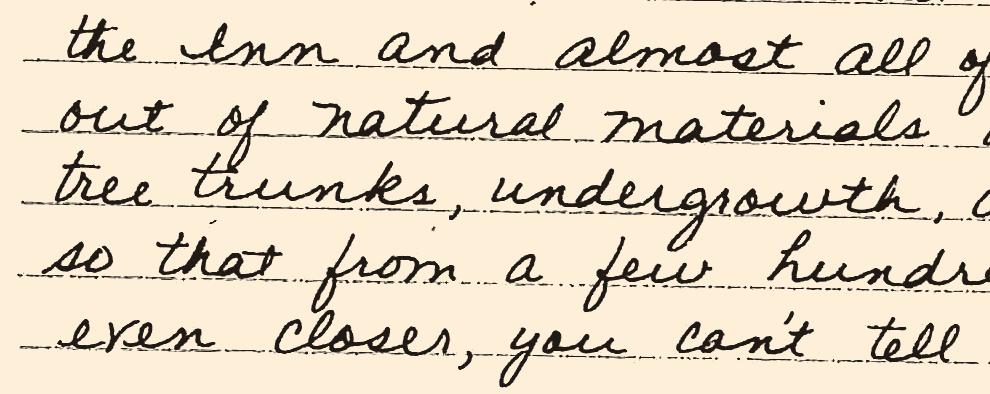 the Inn and almost all of
out of natural materials
tree trunks, undergrowth,
so that from a few
even closer, you can't tell